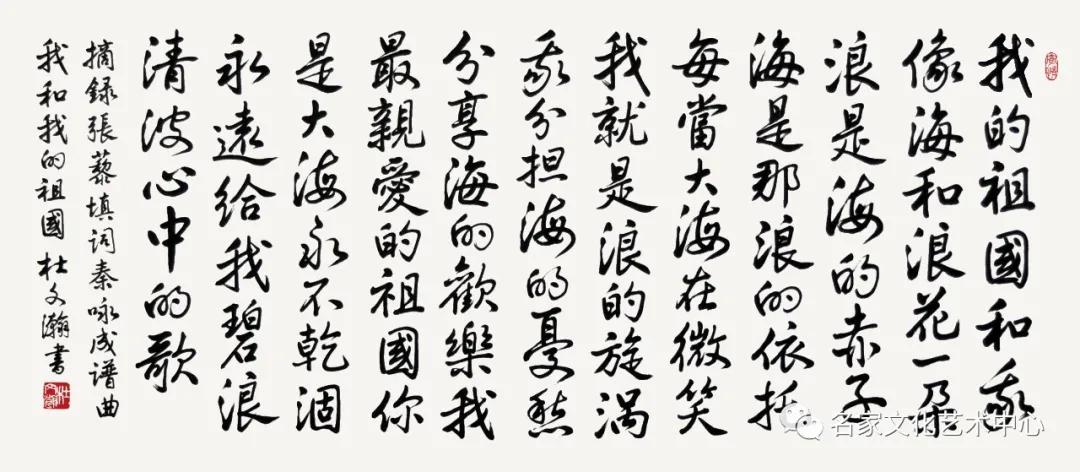 我的祖國和我
像海和浪花一朵
浪是海的赤子
海是那浪的依托
每當大海在微笑
我就是浪的旋渦
我分担海的憂愁
分享海的歡樂我
最親愛的祖國你
是大海永不乾涸
永遠給我碧浪
清波心中的歌
摘録張藜填词秦咏成谱曲
我和我的祖國 杜文瀚書
名家文化艺术中心